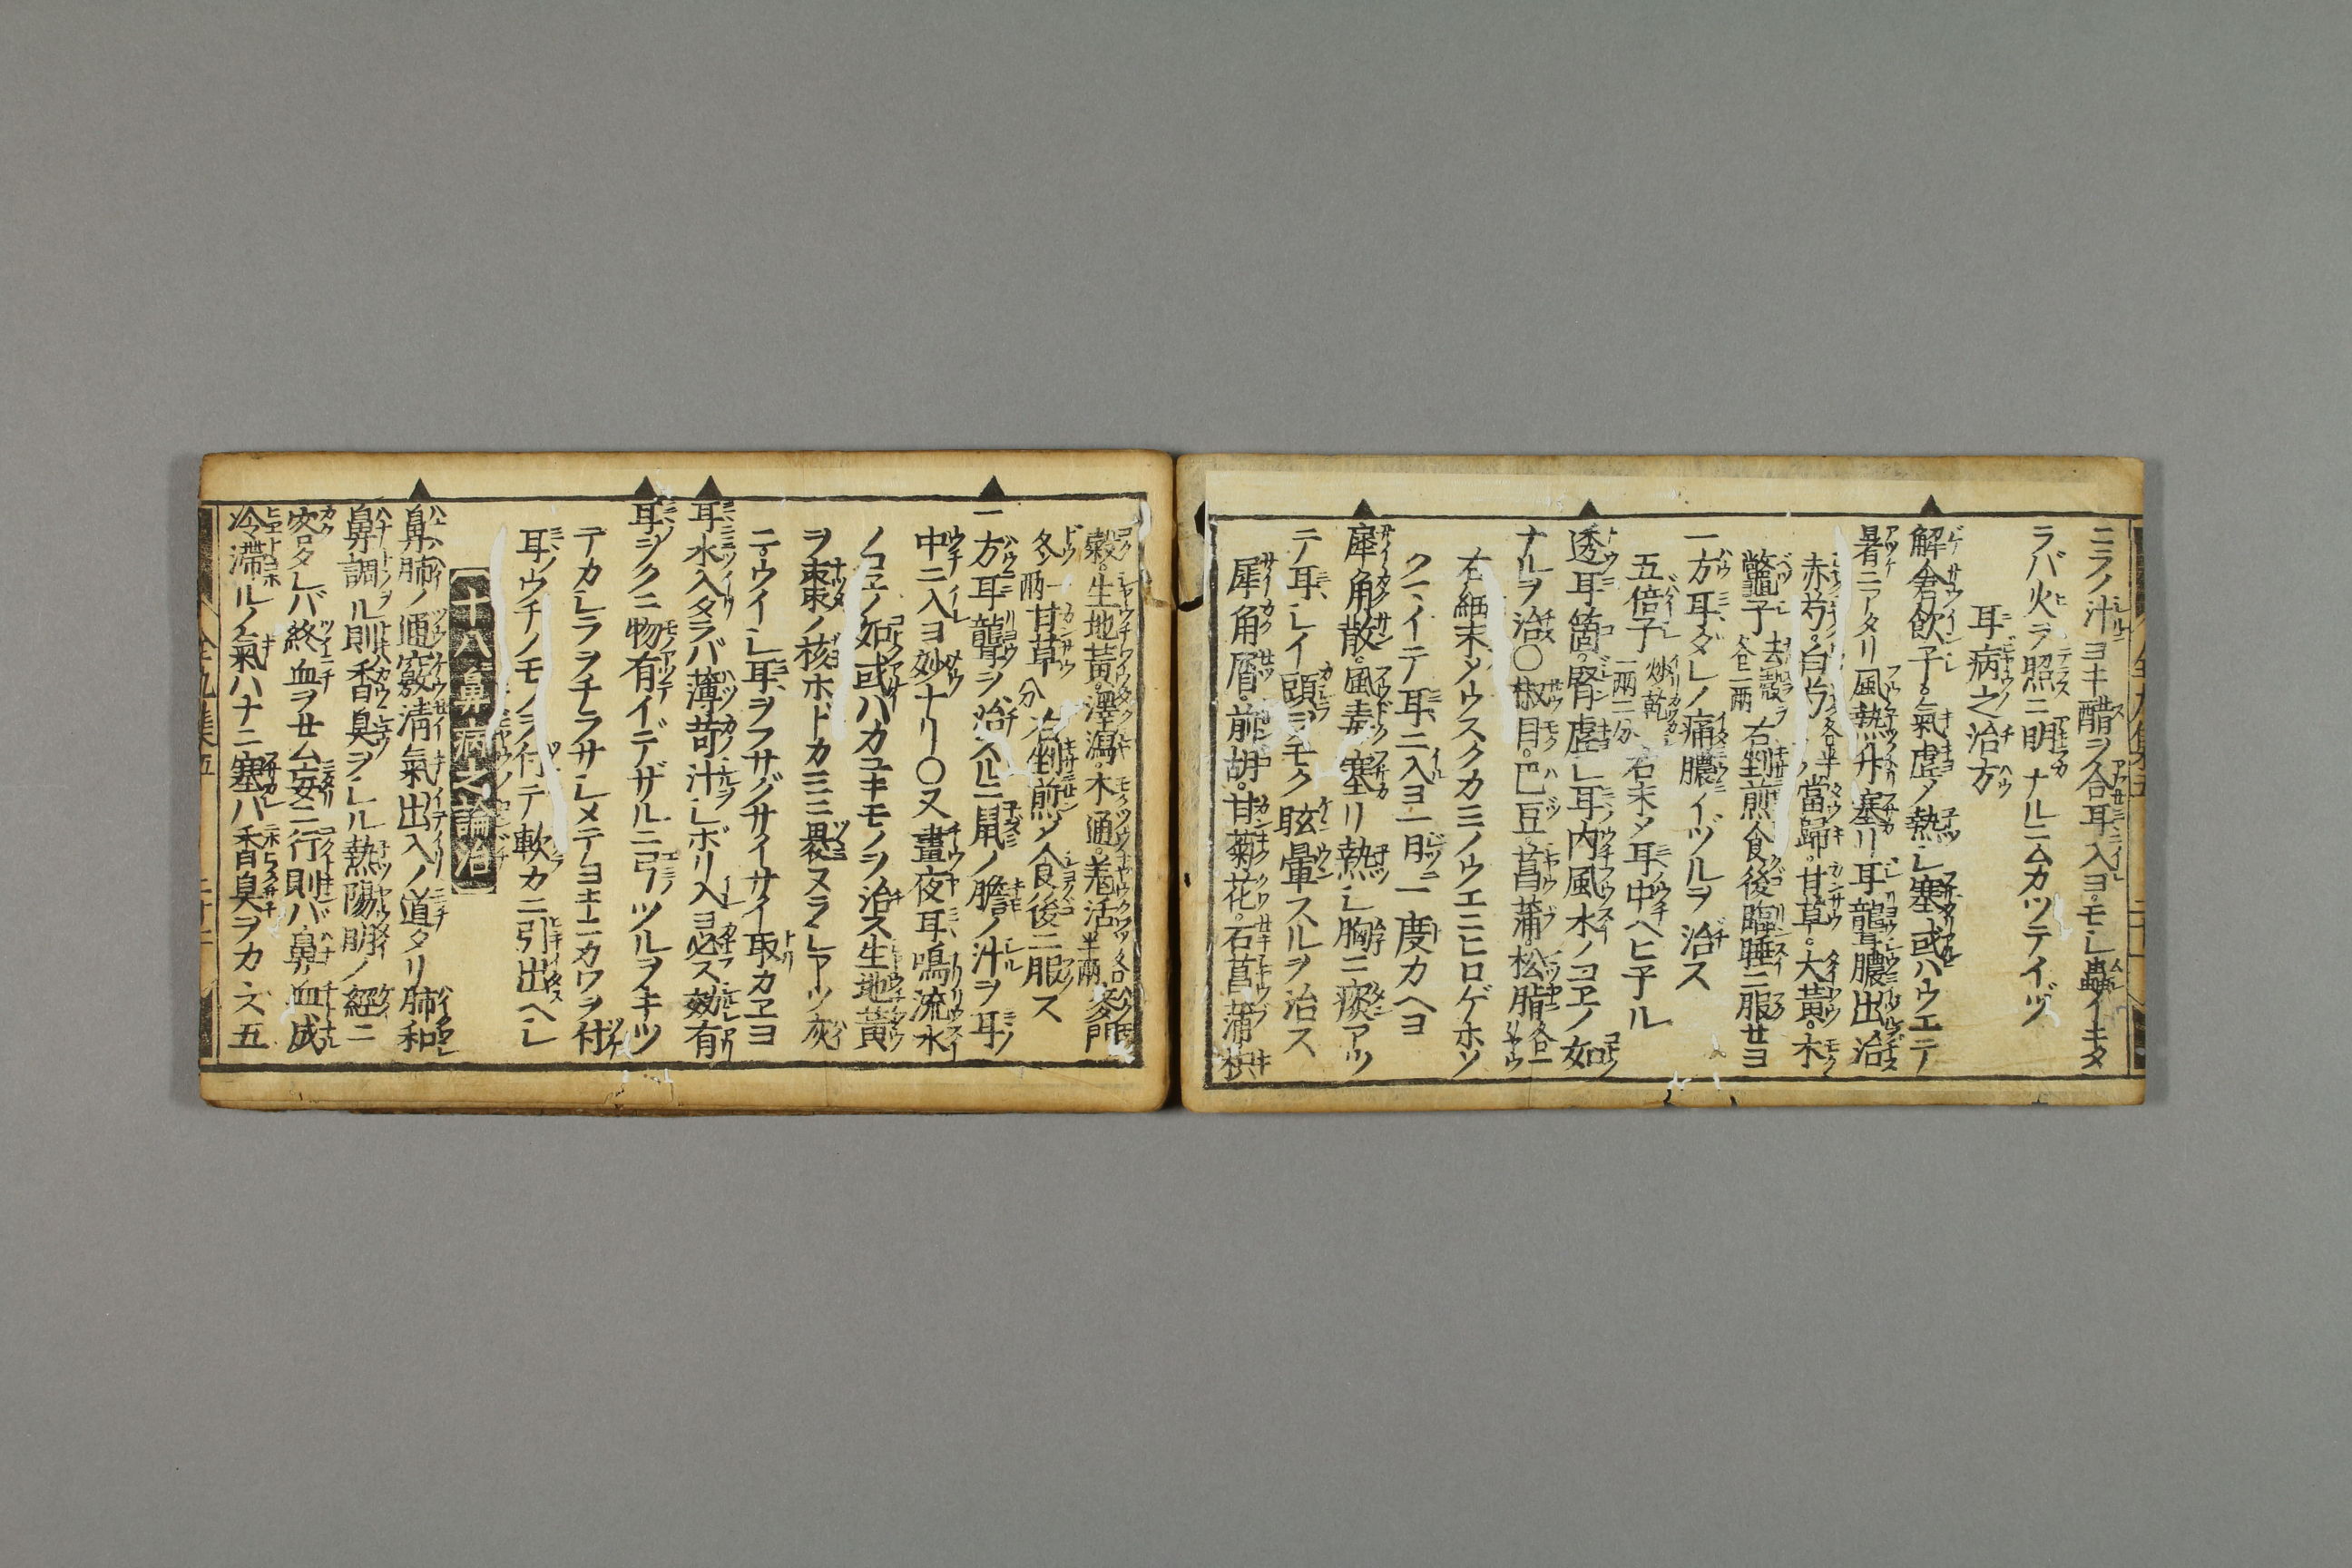 ニラノ汁ヨキ醋ヲ合耳入ヨ。モシ蟲イキタ
ラバ火ヲ照ニ明ナルニムカツテイヅ
耳病之治方
解倉飲子。氣虚メ熱シ塞或ハウエテ
暑ニアタリ風熱升塞リ耳聾膿出治
赤芍。白芍各半當歸。甘草。大黃。木
鼈子去殼各一兩右剉煎食後臨睡ニ服せヨ
一方耳ダレノ痛膿イヅルヲ治ス
五倍子炒乾一兩二分右末メ耳中ヘヒ子ル
透耳筒。腎虚シ耳內風水ノコヱノ如
ナルヲ治〇椒目。巴豆。菖蒲。松脂各一
右細末メウスクカミノウエニヒロゲホソ
クヽイテ耳ニ入ヨ一日一度カヘヨ
犀角散。風毒塞リ熱シ胸ニ痰アツ
テ耳シイ頭ヲモク眩暈スルヲ治ス
犀角屑。前胡。甘菊花。石菖蒲枳
殼。生地黃。澤瀉。木通。羌活半兩麥門
冬一兩甘草八分右剉煎メ食後ニ服ス
一方耳聾ヲ治スルニ鼠ノ膽ノ汁ヲ耳ノ
中ニ入ヨ妙ナリ〇又晝夜耳鳴流水
ノコヱノ如或ハカユキモノヲ治ス生地黃
ヲ棗ノ核ホドカミニ裹ヌラシアツ灰
ニウイシ耳ヲフサグサイサイ取カヱヨ
耳水入タラバ薄苛汁シボリ入ヨ必ス效有
耳ヲクニ物有イデザルニ弓ノツルヲキツ
テカシラヲチラサシメテヨキニカワヲ付
耳ノウチノモノヲ付テ軟カニ引出ヘシ
十八鼻病之論治
鼻ハ肺ノ通竅淸氣出入ノ道タリ肺和
鼻調ル則香臭ヲシル熱陽明ノ經ニ
客タレバ終血ヲせム妄ニ行則バ鼻血成
冷滯ルノ氣ハナニ塞バ香臭ヲカヾズ五